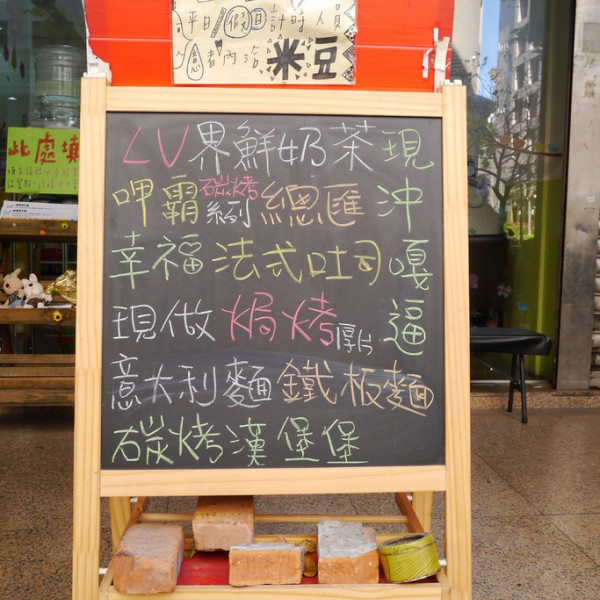 平日/假日計時人員
意者內洽 米豆
此處填
LV界鮮奶茶現
呷霸碳烤系列總匯沖
幸福法式吐司嘎
現做焗烤厚片逼
意大利麵鐵板麵
碳烤漢堡堡